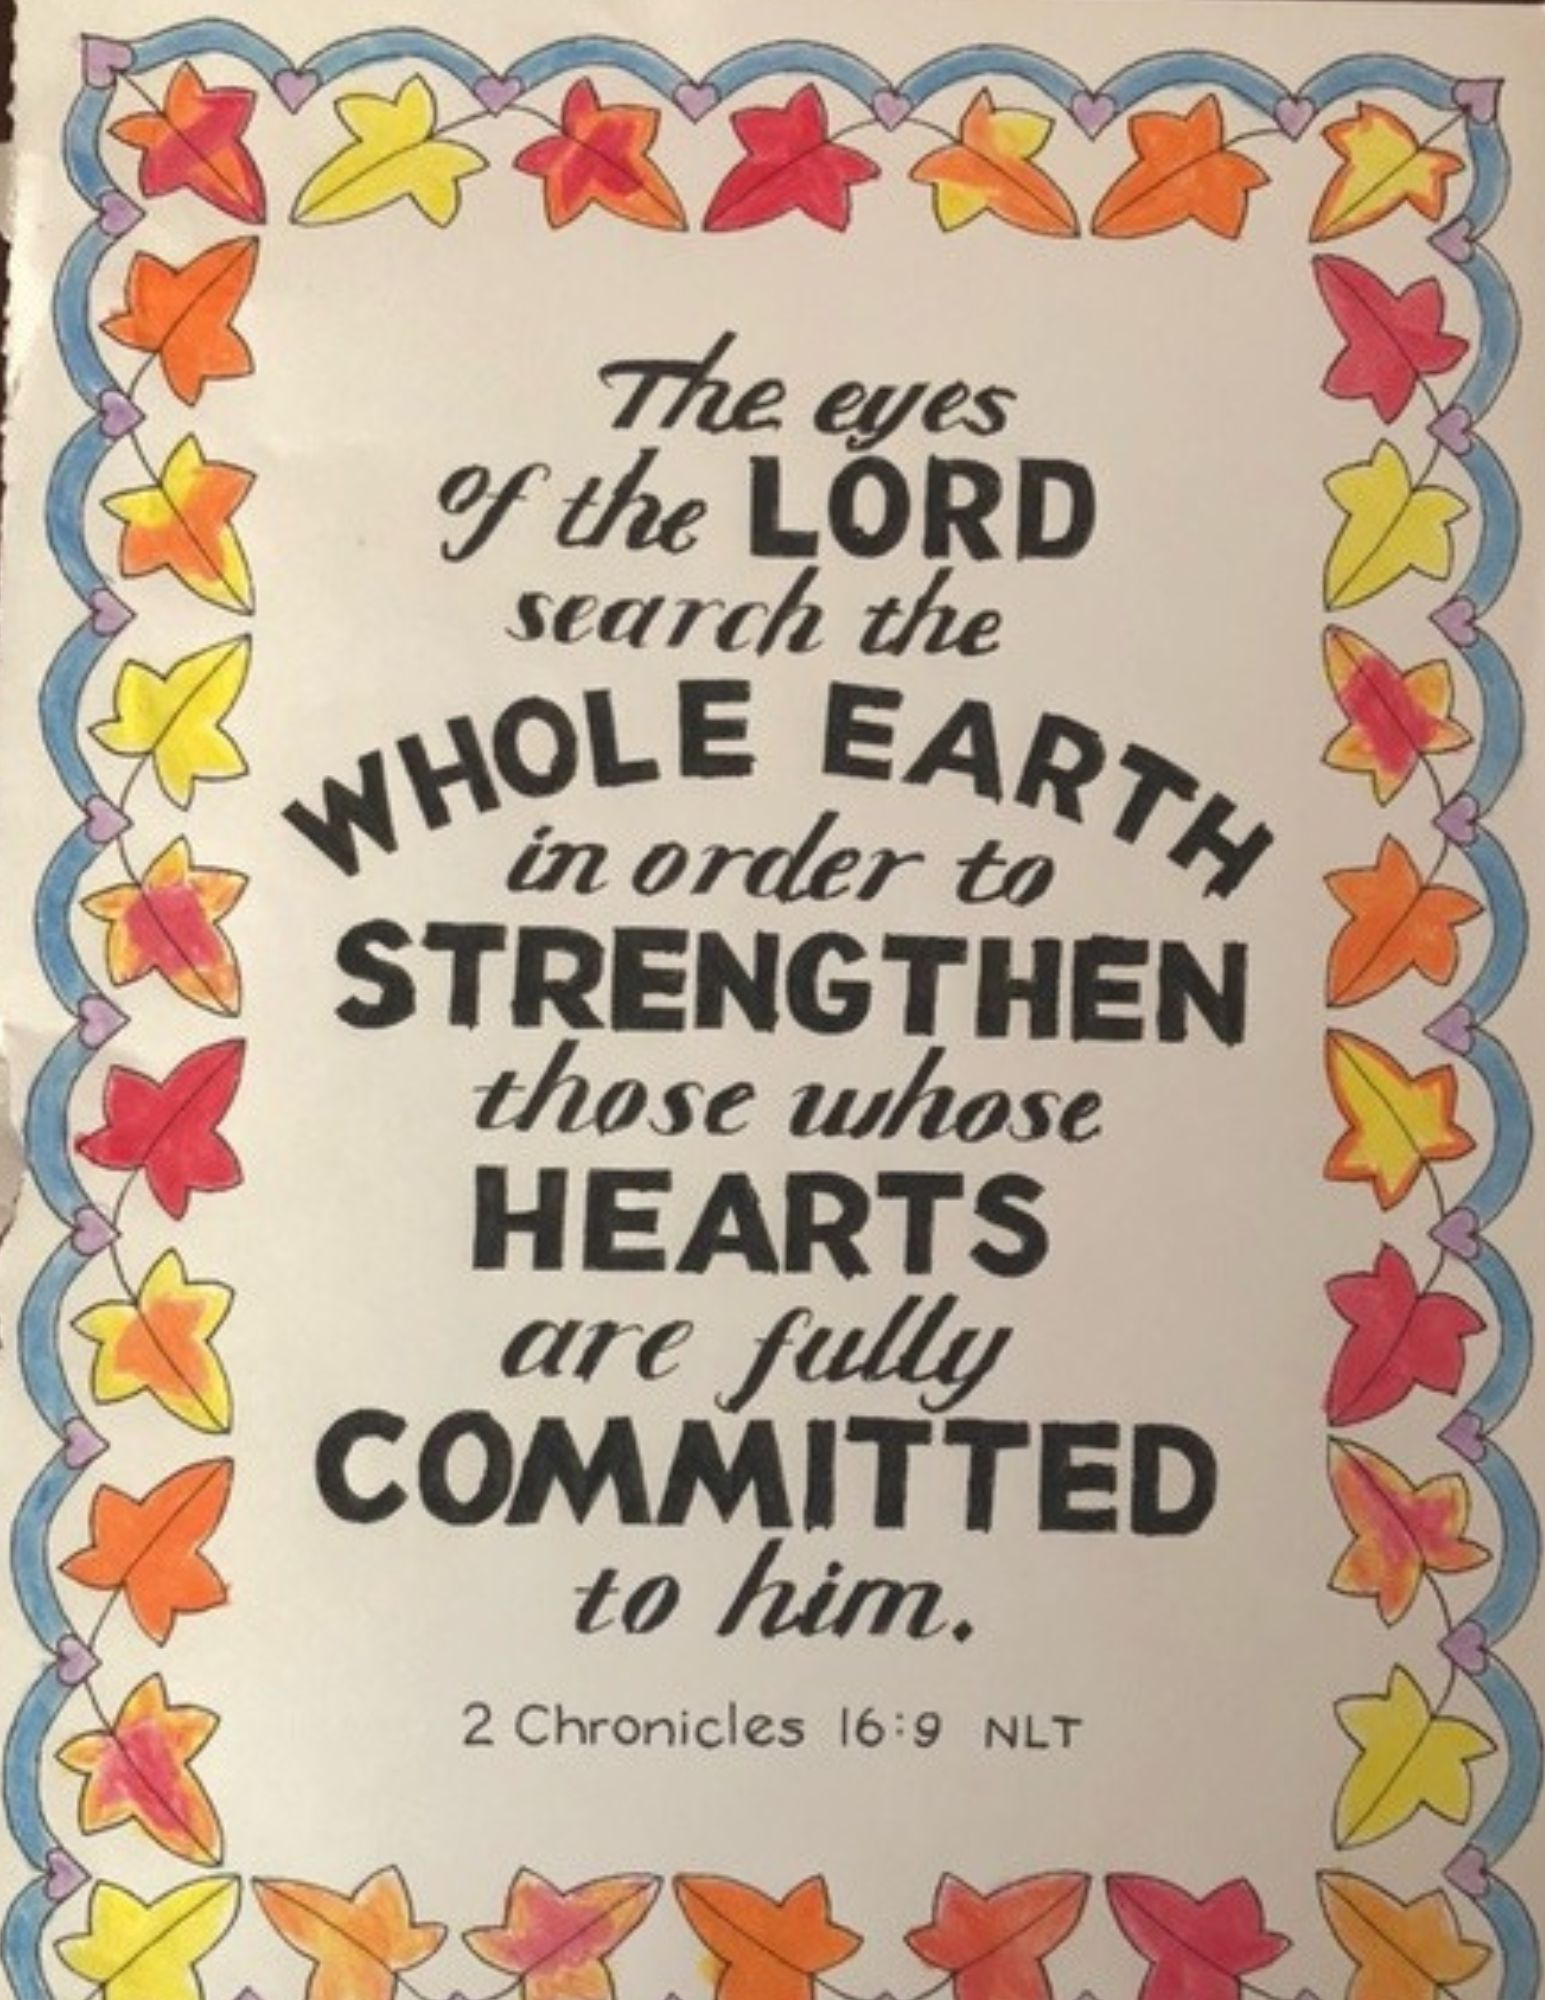 The eyes
of the LORD
search the
WHOLE EARTH
in order to
STRENGTHEN
those whose
HEARTS
are fully
COMMITTED
to him.
2 Chronicles 16:9 NLT